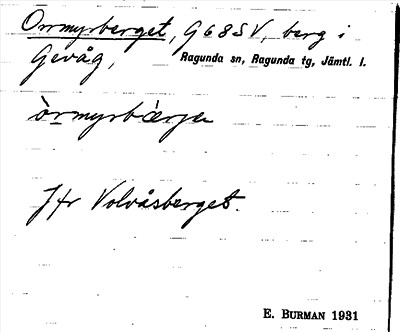 Orrmyrberget, G68SV, berg i
Gevåg, Ragunda sn, Ragunda tg, Jämtl. l.
òrmyrbǽrjə
Jfr Volvåsberget.
E. BURMAN 1931